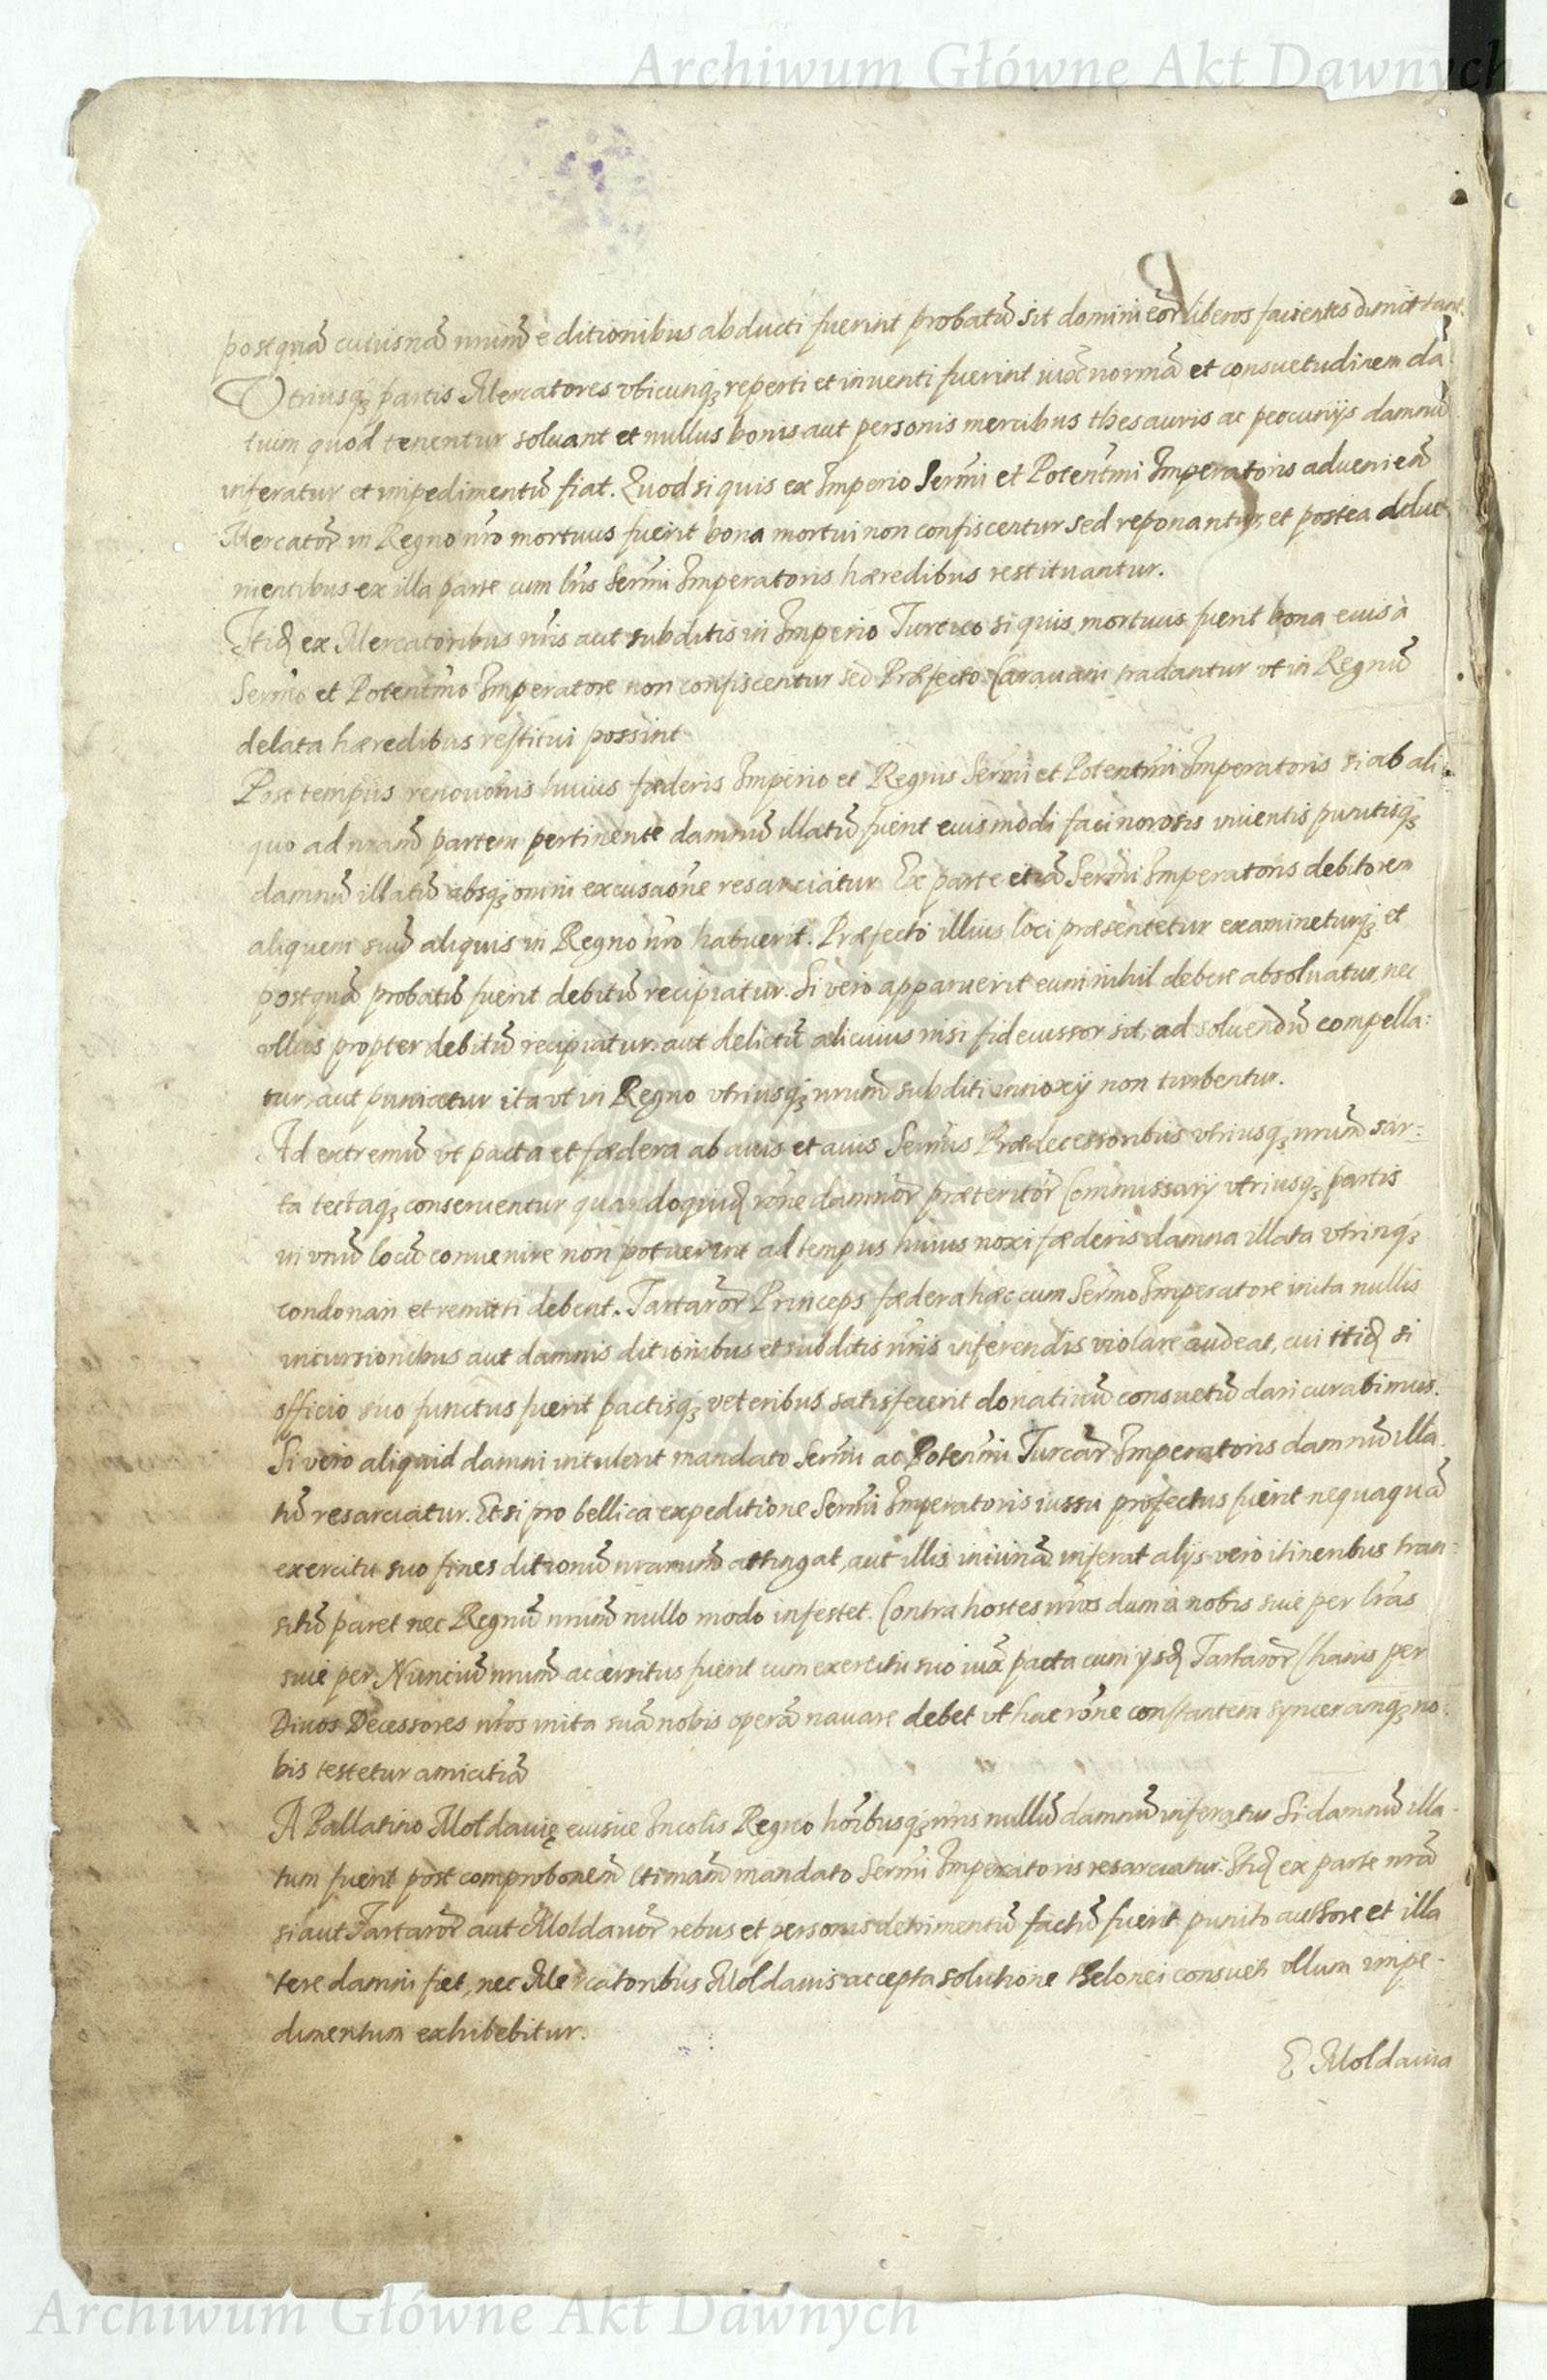 Archiwum Główne Akt Dawnych
postquā cuiusnā nrumū e ditionibus abducti fuerint probatū sit domini eor̄ liberos facientes dimittant.
Vtriusqȝ partis Mercatores vbicunqȝ reperti et inuenti fuerint iuxa normā et consuetudinem da
tuim quod tenentur soluant et nullus bonis aut personis mercibus thesauris ac peocunijs damnū
inferatur et impedimentū fiat. Quod si quis ex Imperio Sermi et Potentmi Imperatoris adueniēn
Mercator̄ in Regno nro mortuus fuerit bona mortui non confiscentur sed reponantur, et postea
nientibus ex illa parte cum lris Sermi Imperatoris hæredibus restituantur.
Itiđ ex Mercatoribus nris aut subditis in Imperio Turcico si quis mortuus fuerit bona eius à
Sermo et Potentmo Imperatore non confiscentur sed Præfecto Carauani tradantur vt in Regnū
delata hæredibus restitui possint
Post tempus renouonis huius fæderis Imperio et Regnis Sermi et Potentmi Imperatoris si ab ali
quo ad nram̄ partem pertinente damnū illatū fuerit eiusmodi facinorosis inuentis punitisqȝ
damnū illatū absqȝ omni excusaōne resarciatur Ex parte etiā Sermi Imperatoris debitorem
aliquem suū aliquis in Regno nro habuerit. Præfecto illius loci præsentetur examineturqȝ et
postquā probatū fuerit debitū recipiatur. Si vero apparuerit eum nihil debere absoluatur, nec
ullus propter debitū recipiatur aut delictū alicuius nisi fideiussor sit, ad soluendū compella:
tur, aut puniatur ita vt in Regno vtriusqȝ nrumū subditi innoxij non turbentur.
Ad extremū vt pacta et fædera ab auis et auis Sermis Prædecessoribus vtriusqȝ nrumū sar:
ta tectaqȝ conseruentur quandoquiđ rōne damnor̄ præteritor̄ Commissarij vtriusqȝ partis
in vnū locū conuenire non potuerint ad tempus huius noxi fæderis damna illata vtrinqȝ
condonari et remitti debent. Tartaror̄ Princeps fædera hæc cum Sermo Imperatore inita nullis
incursionibus aut damnis ditionibus et subditis nris inferendis violare audeat, cui itiđ si
officio suo functus fuerit pactisqȝ veteribus satisfecerit donatiuū consuetū dari curabimus.
Si vero aliquid damni intulerit mandato Sermi ac Potenmi Turcar̄ Imperatoris damnū illa
tū resarciatur. Et si pro bellica expeditione Sermi Imperatoris iussu profectus fuerit nequaquā
exercitu suo fines ditionū nrarumū attingat, aut illis iniuriā inferat alijs vero itineribus tran:
sitū paret nec Regnū nrumū nullo modo infestet. Contra hostes nros dum à nobis siue per lras
siue per Nunciū nrumū accersitus fuerit cum exercitu suo iuxa pacta cum ijsđ Tartaror̄ Chanis per
Diuos Decessores nros inita suā nobis operā nauare debet vt hac rōne constantem synceramqȝ no:
bis testetur amicitiā
A Pallatino Moldauię eiusue Incolis Regno hoībusqȝ nris nullū damnū inferatur Si damnū illa
tum fuerit post comprobonem̄ ltimam̄ mandato Sermi Imperatoris resarciatur. Itiđ ex parte nrā
si aut Tartaror̄ aut Moldauor̄ rebus et personis detrimentū factū fuerit punito authore et illa
tere damni fiet, nec Mercatoribus Moldauis accepta solutione thelonei consueti ullum impe-
dimentum exhibebitur.
E Moldauia
Archiwum Główne Akt Dawnych